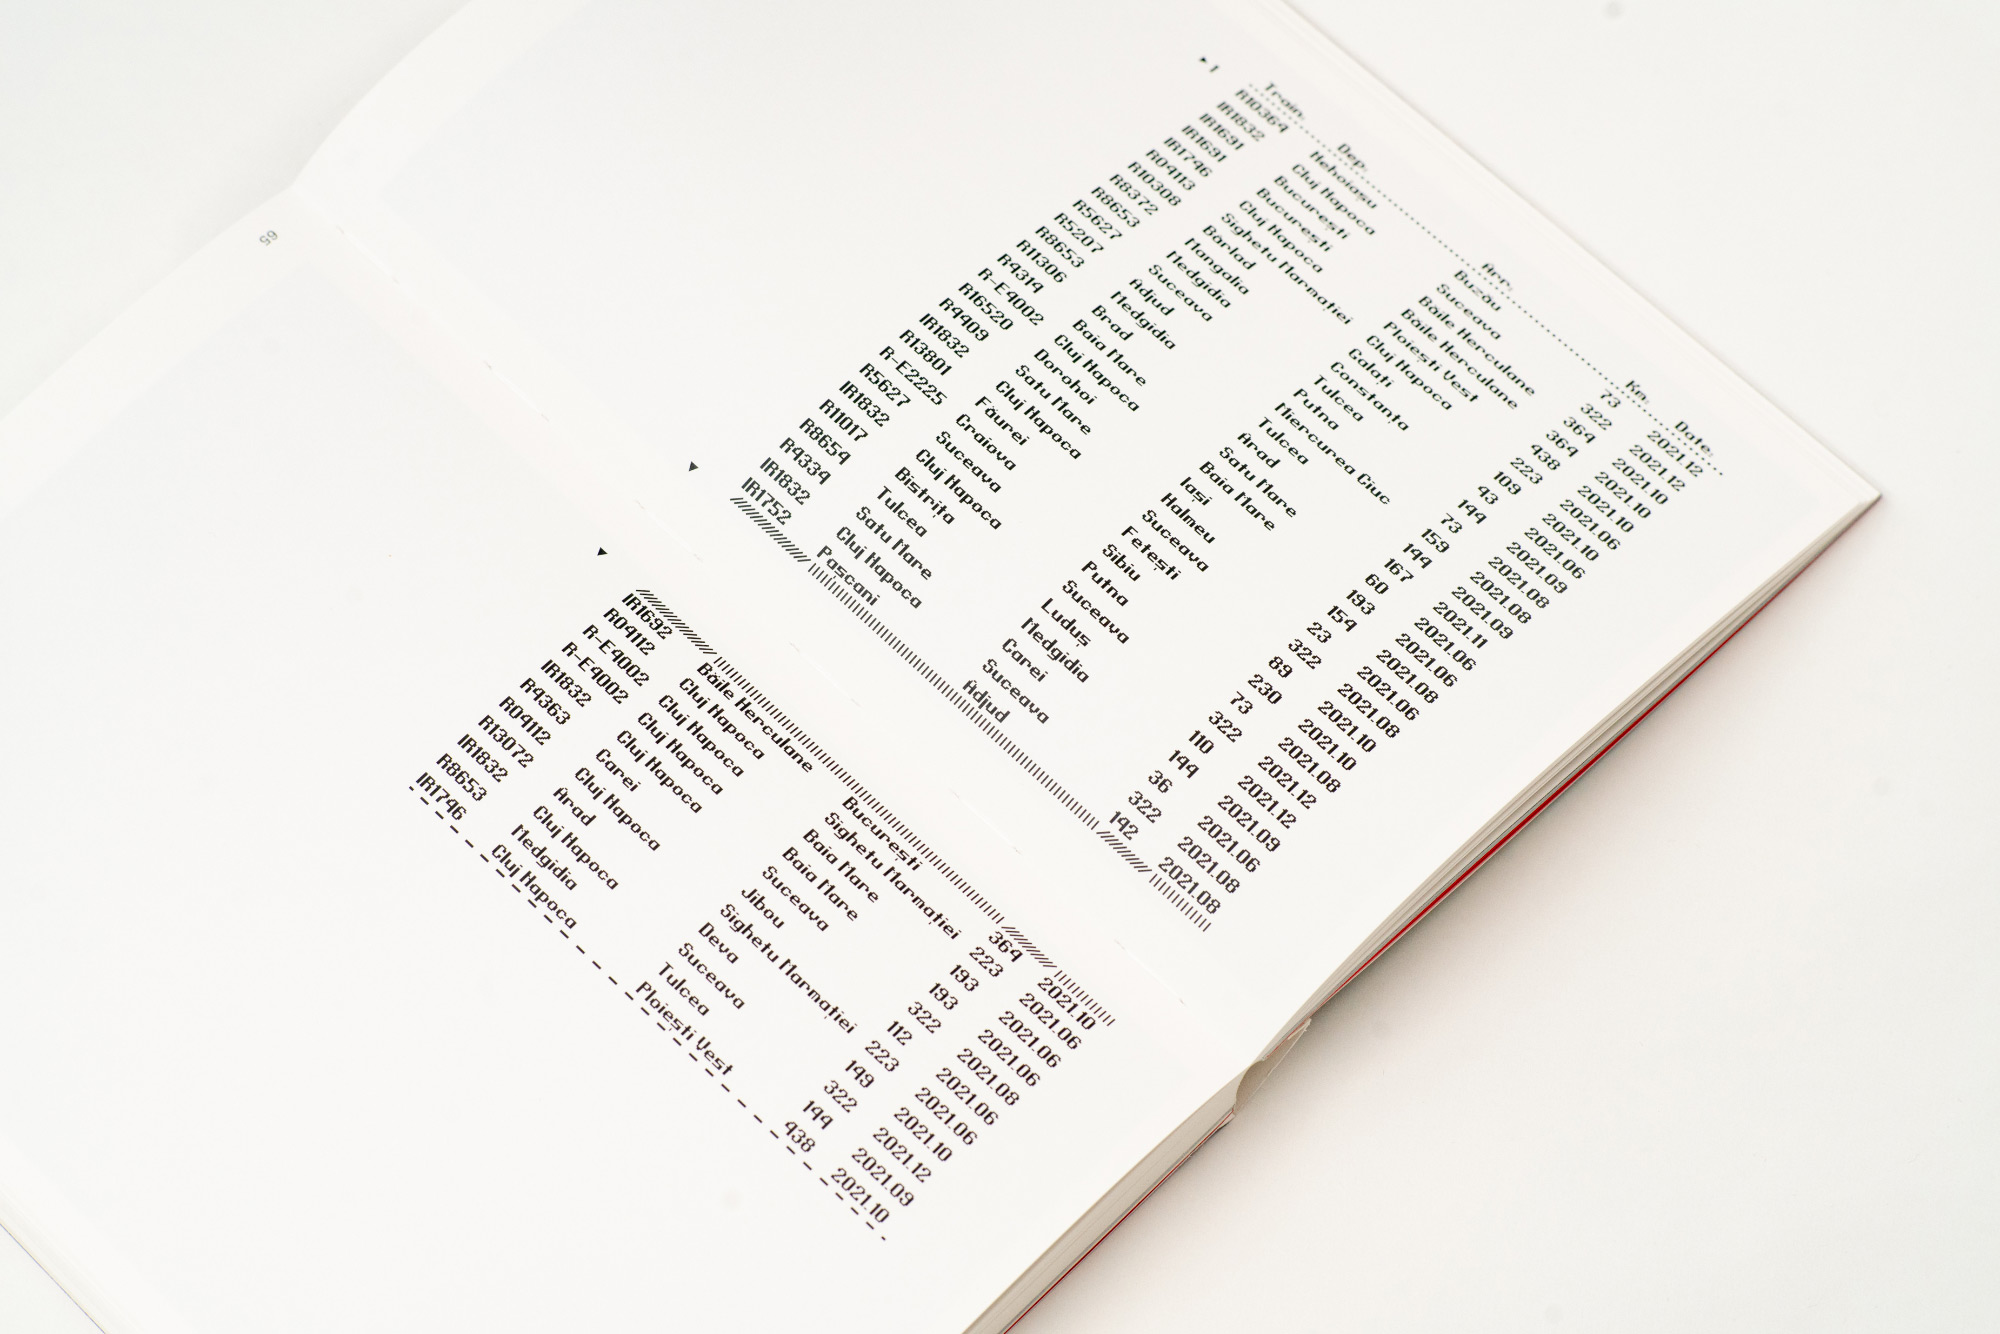 65
1
Train: Dep: Arr: Km: Date:
R10364 Nehoiașu Buzău 73 2021.12
IR1832 Cluj Napoca Suceava 322 2021.12
IR1691 București Băile Herculane 364 2021.10
IR1691 București Băile Herculane 364 2021.10
IR1746 Cluj Napoca Ploiești Vest 438 2021.10
R04113 Sighetu Marmației Cluj Napoca 223 2021.06
R10308 Bârlad Galați 109 2021.06
R8372 Mangalia Constanța 43 2021.08
R8653 Medgidia Tulcea 144 2021.09
R5627 Suceava Putna 73 2021.08
R5207 Adjud Miercurea Ciuc 159 2021.08
R8653 Medgidia Tulcea 144 2021.09
R11306 Brad Arad 167 2021.11
R4314 Baia Mare Satu Mare 60 2021.06
R-E4002 Cluj Napoca Baia Mare 193 2021.06
R16520 Dorohoi Iași 154 2021.08
R4409 Satu Mare Halmeu 23 2021.06
IR1832 Cluj Napoca Suceava 322 2021.08
R13801 Făurei Fetești 89 2021.10
R-E2225 Craiova Sibiu 230 2021.10
R5627 Suceava Putna 73 2021.08
IR1832 Cluj Napoca Suceava 322 2021.12
R11017 Bistrița Luduș 110 2021.12
R8654 Tulcea Medgidia 144 2021.09
R4334 Satu Mare Carei 36 2021.06
IR1832 Cluj Napoca Suceava 322 2021.08
IR1752 Pașcani Adjud 142 2021.08
IR1692 Băile Herculane București 364 2021.10
R04112 Cluj Napoca Sighetu Marmației 223 2021.06
R-E4002 Cluj Napoca Baia Mare 193 2021.06
R-E4002 Cluj Napoca Baia Mare 193 2021.06
IR1832 Cluj Napoca Suceava 322 2021.08
R4363 Carei Jibou 112 2021.06
R04112 Cluj Napoca Sighetu Marmației 223 2021.06
R13072 Arad Deva 149 2021.10
IR1832 Cluj Napoca Suceava 322 2021.12
R8653 Medgidia Tulcea 144 2021.09
IR1746 Cluj Napoca Ploiești Vest 438 2021.10